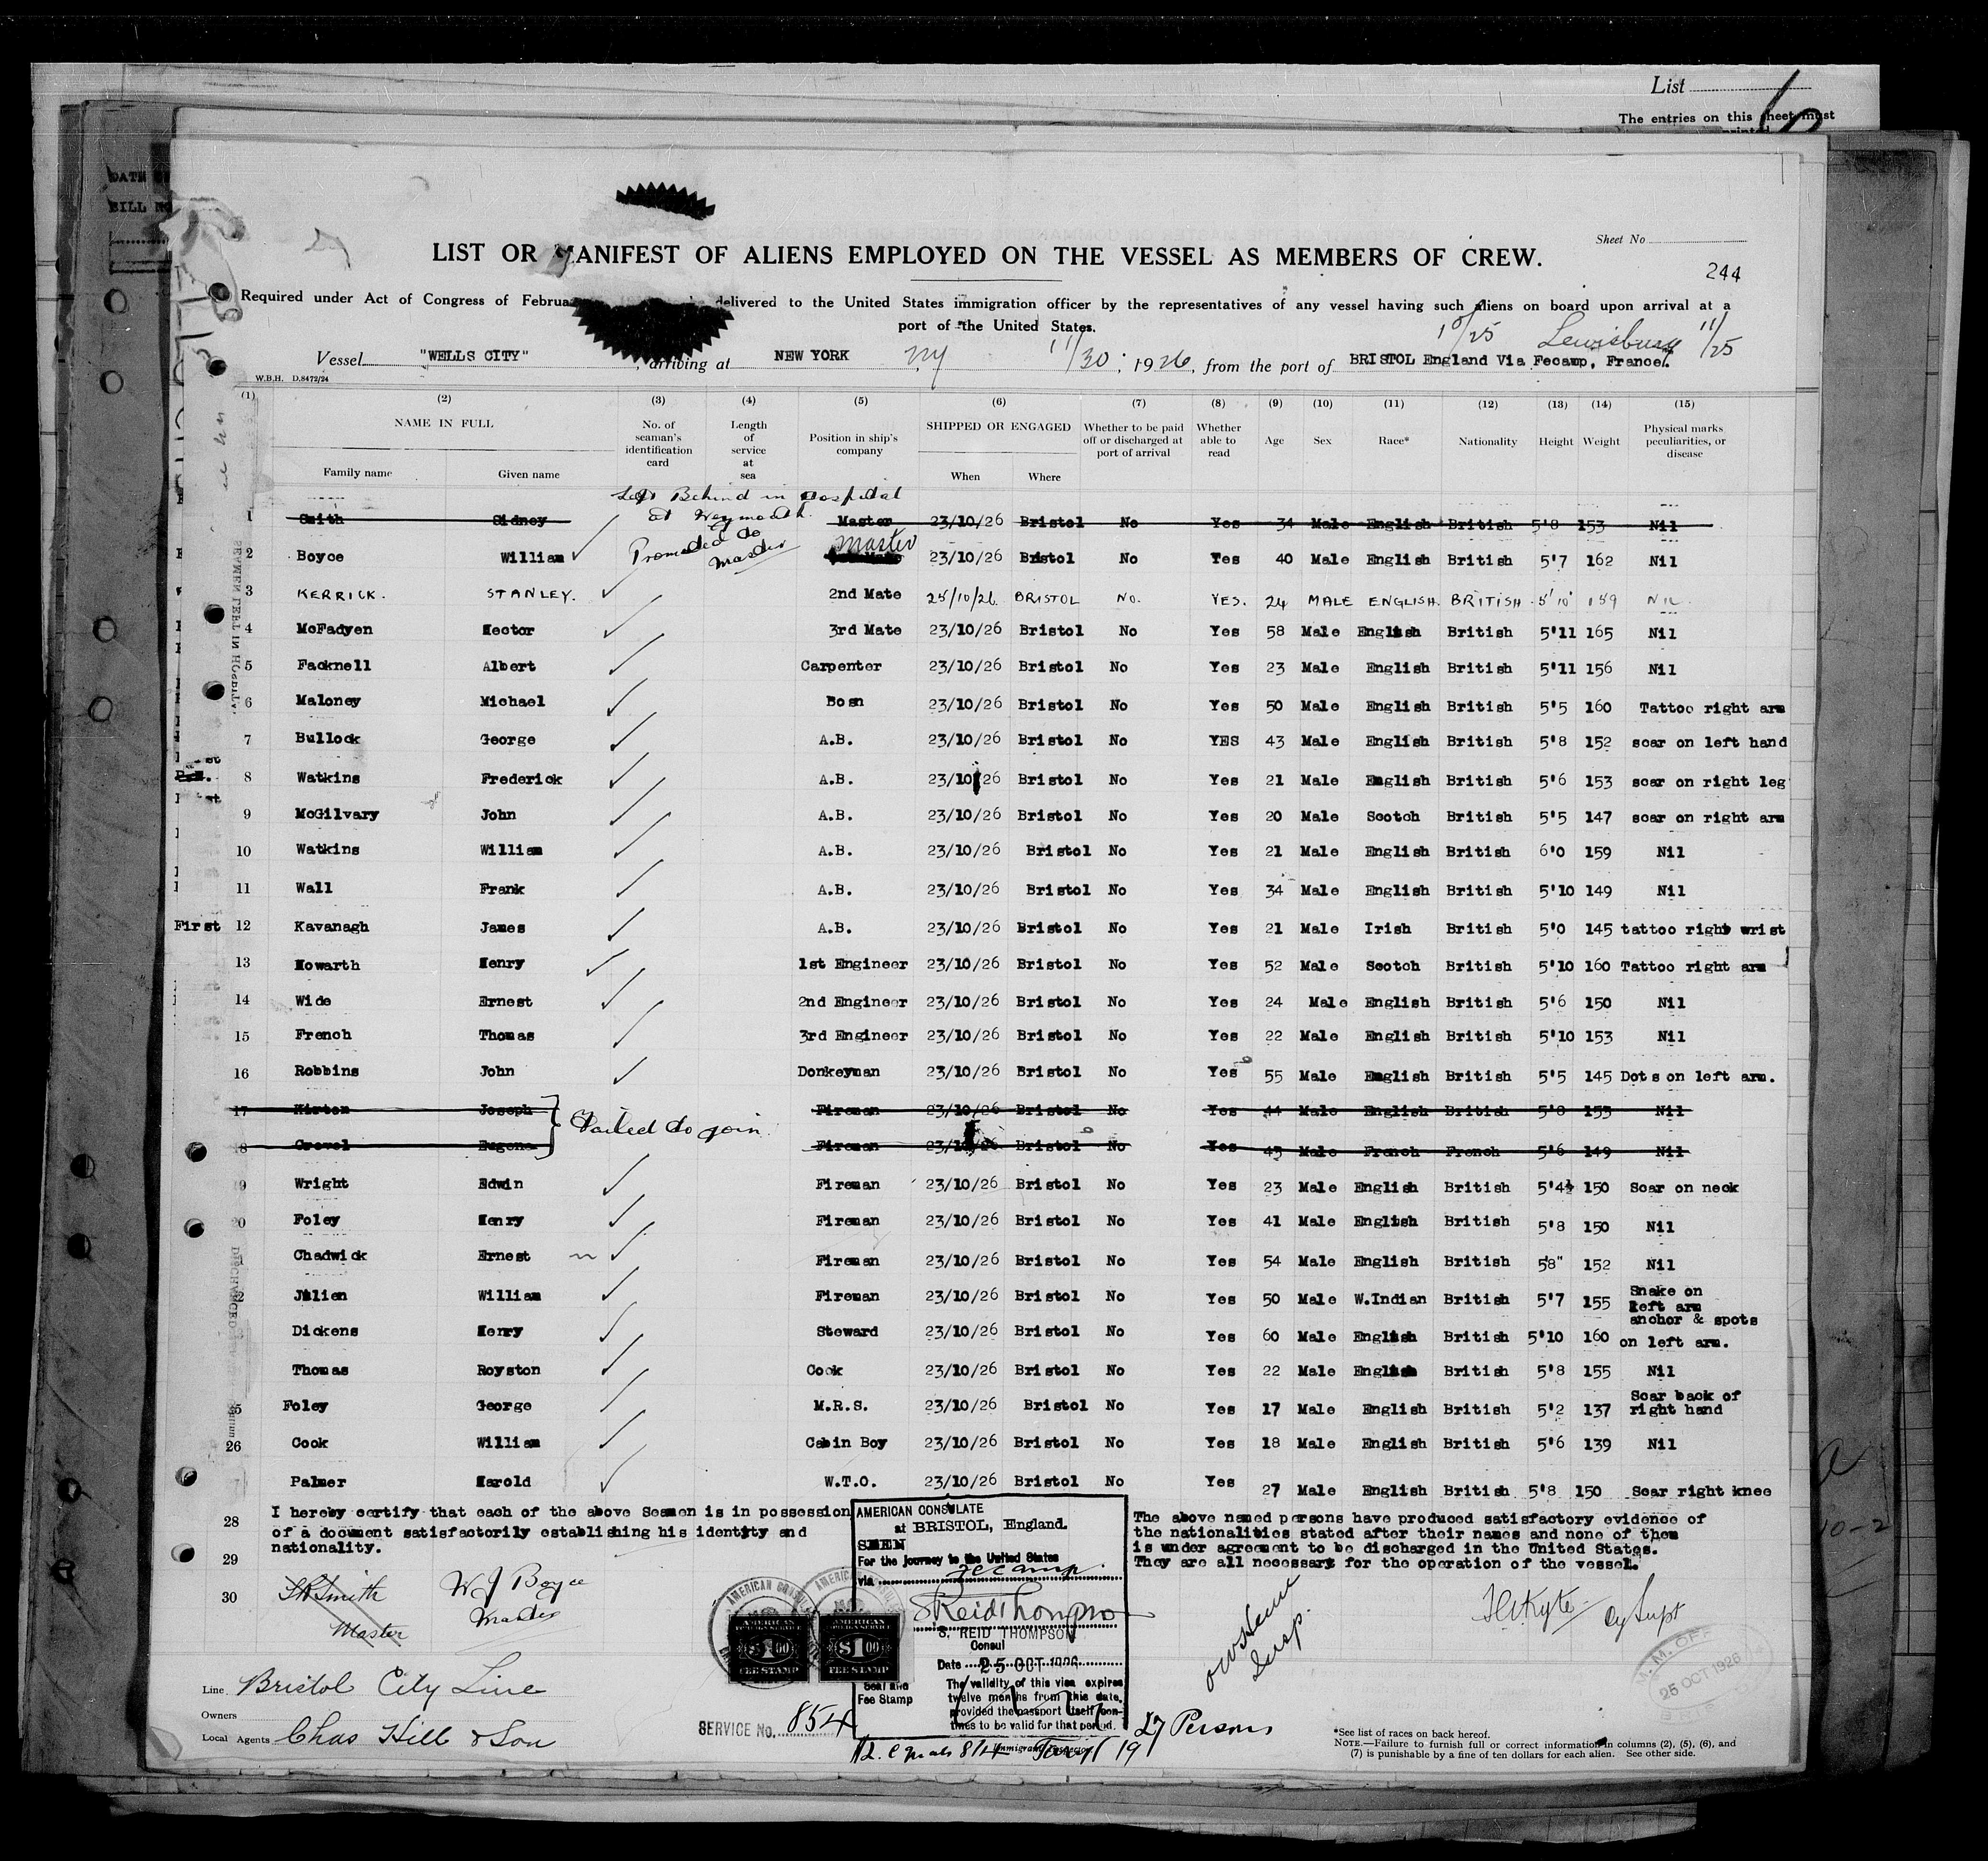 List
The entries on this sheet must
DATE
BILL NO
Sheet No
LIST OR MANIFEST OF ALIENS EMPLOYED ON THE VESSEL AS MEMBERS OF CREW.
244
Required under Act of Congress of Februa delivered to the United States immigration officer by the representatives of any vessel having such aliens on board upon arrival at a
port of the United States.
10/25 Lewisburg 11/25
Vessel "WELLS CITY", arriving at NEW YORK NY 11/30, 1926, from the port of BRISTOL England Via Fecamp, France.
W.B.H. D.8472/24
(1) (2) (3) (4) (5) (6) (7) (8) (9) (10) (11) (12) (13) (14) (15)
NAME IN FULL No. of seaman's identification card Length of service at sea Position in ship's company SHIPPED OR ENGAGED Whether to be paid off or discharged at port of arrival Whether able to read Age Sex Race* Nationality Height Weight Physical marks peculiarities, or disease
Family name Given name When Where
Left Behind in Hospital
at Weymouth
1 Smith Sidney Master 23/10/26 Bristol No Yes 34 Male English British 5'8 153 Nil
Promoted to Master
2 Boyce William Master 23/10/26 Bristol No Yes 40 Male English British 5'7 162 Nil
3 KERRICK. STANLEY. 2nd Mate 25/10/26 BRISTOL NO. YES. 24 MALE ENGLISH. BRITISH 5'10" 159 NIL
4 McFadyen Hector 3rd Mate 23/10/26 Bristol No Yes 58 Male English British 5'11 165 Nil
5 Facknell Albert Carpenter 23/10/26 Bristol No Yes 23 Male English British 5'11 156 Nil
6 Maloney Michael Bosn 23/10/26 Bristol No Yes 50 Male English British 5'5 160 Tattoo right arm
7 Bullock George A.B. 23/10/26 Bristol No YES 43 Male English British 5'8 152 scar on left hand
8 Watkins Frederick A.B. 23/10/26 Bristol No Yes 21 Male English British 5'6 153 scar on right leg
9 McGilvary John A.B. 23/10/26 Bristol No Yes 20 Male Scotch British 5'5 147 scar on right arm
10 Watkins William A.B. 23/10/26 Bristol No Yes 21 Male English British 6'0 159 Nil
11 Wall Frank A.B. 23/10/26 Bristol No Yes 34 Male English British 5'10 149 Nil
First 12 Kavanagh James A.B. 23/10/26 Bristol No Yes 21 Male Irish British 5'0 145 tattoo right wrist
13 Howarth Henry 1st Engineer 23/10/26 Bristol No Yes 52 Male Scotch British 5'10 160 Tattoo right arm
14 Wide Ernest 2nd Engineer 23/10/26 Bristol No Yes 24 Male English British 5'6 150 Nil
15 French Thomas 3rd Engineer 23/10/26 Bristol No Yes 22 Male English British 5'10 153 Nil
16 Robbins John Donkeyman 23/10/26 Bristol No Yes 55 Male English British 5'5 145 Dots on left arm.
17 Kirton Joseph Fireman 23/10/26 Bristol No Yes 44 Male English British 5'8 155 Nil
Failed to join
8 Crevel Eugene Fireman 23/10/26 Bristol No Yes 45 Male French French 5'6 149 Nil
9 Wright Edwin Fireman 23/10/26 Bristol No Yes 23 Male English British 5'4½ 150 Scar on neck
0 Foley Henry Fireman 23/10/26 Bristol No Yes 41 Male English British 5'8 150 Nil
Chadwick Ernest Fireman 23/10/26 Bristol No Yes 54 Male English British 58" 152 Nil
2 Julien William Fireman 23/10/26 Bristol No Yes 50 Male W.Indian British 5'7 155 Snake on left arm
Dickens Henry Steward 23/10/26 Bristol No Yes 60 Male English British 5'10 160 anchor & spots on left arm.
Thomas Royston Cook 23/10/26 Bristol No Yes 22 Male English British 5'8 155 Nil
5 Foley George M.R.S. 23/10/26 Bristol No Yes 17 Male English British 5'2 137 Scar back of right hand
26 Cook William Cabin Boy 23/10/26 Bristol No Yes 18 Male English British 5'6 139 Nil
7 Palmer Harold W.T.O. 23/10/26 Bristol No Yes 27 Male English British 5'8 150 Scar right knee
28 I hereby certify that each of the above Seamen is in possession
of a document satisfactorily establishing his identity and
29 nationality.
30 SR Smith
Master
W J Boyce
Master
AMERICAN CONSULATE
at BRISTOL, England.
SEEN
For the journey to the United States
via Fecamp
S Reid Thompson
S. REID THOMPSON
Consul
Date 25 OCT 1926
Seal and Fee Stamp
The validity of this visa expires
twelve months from this date,
provided the passport itself con-
tinues to be valid for that period.
AMERICAN FOREIGN SERVICE $1.00 FEE STAMP
AMERICAN FOREIGN SERVICE $1.00 FEE STAMP
The above named persons have produced satisfactory evidence of
the nationalities stated after their names and none of them
is under agreement to be discharged in the United States.
They are all necessary for the operation of the vessel.
Insp.
Dy Supt
M. M. OFF
25 OCT 1926
Line Bristol City Line
Owners
Local Agents Chas Hill & Son
SERVICE No. 854
$2. equals 8/4 Tariff 19
Immigrant Inspector
27 Persons
*See list of races on back hereof.
NOTE.—Failure to furnish full or correct information in columns (2), (5), (6), and
(7) is punishable by a fine of ten dollars for each alien. See other side.